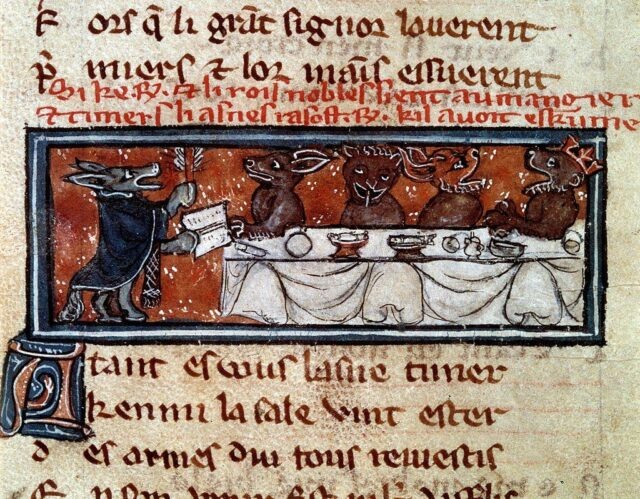 L ors q̃ li grãt signor lauerent
p̃ miers ⁊ lor mãis essuerent
Si ke R. ⁊ li rois nobles sient au mangier
⁊ timers li asnes R. kil auoit eskume
A tant es uous lasne timer
k enmi la sale vint ester
d es armes diu tous reuestis